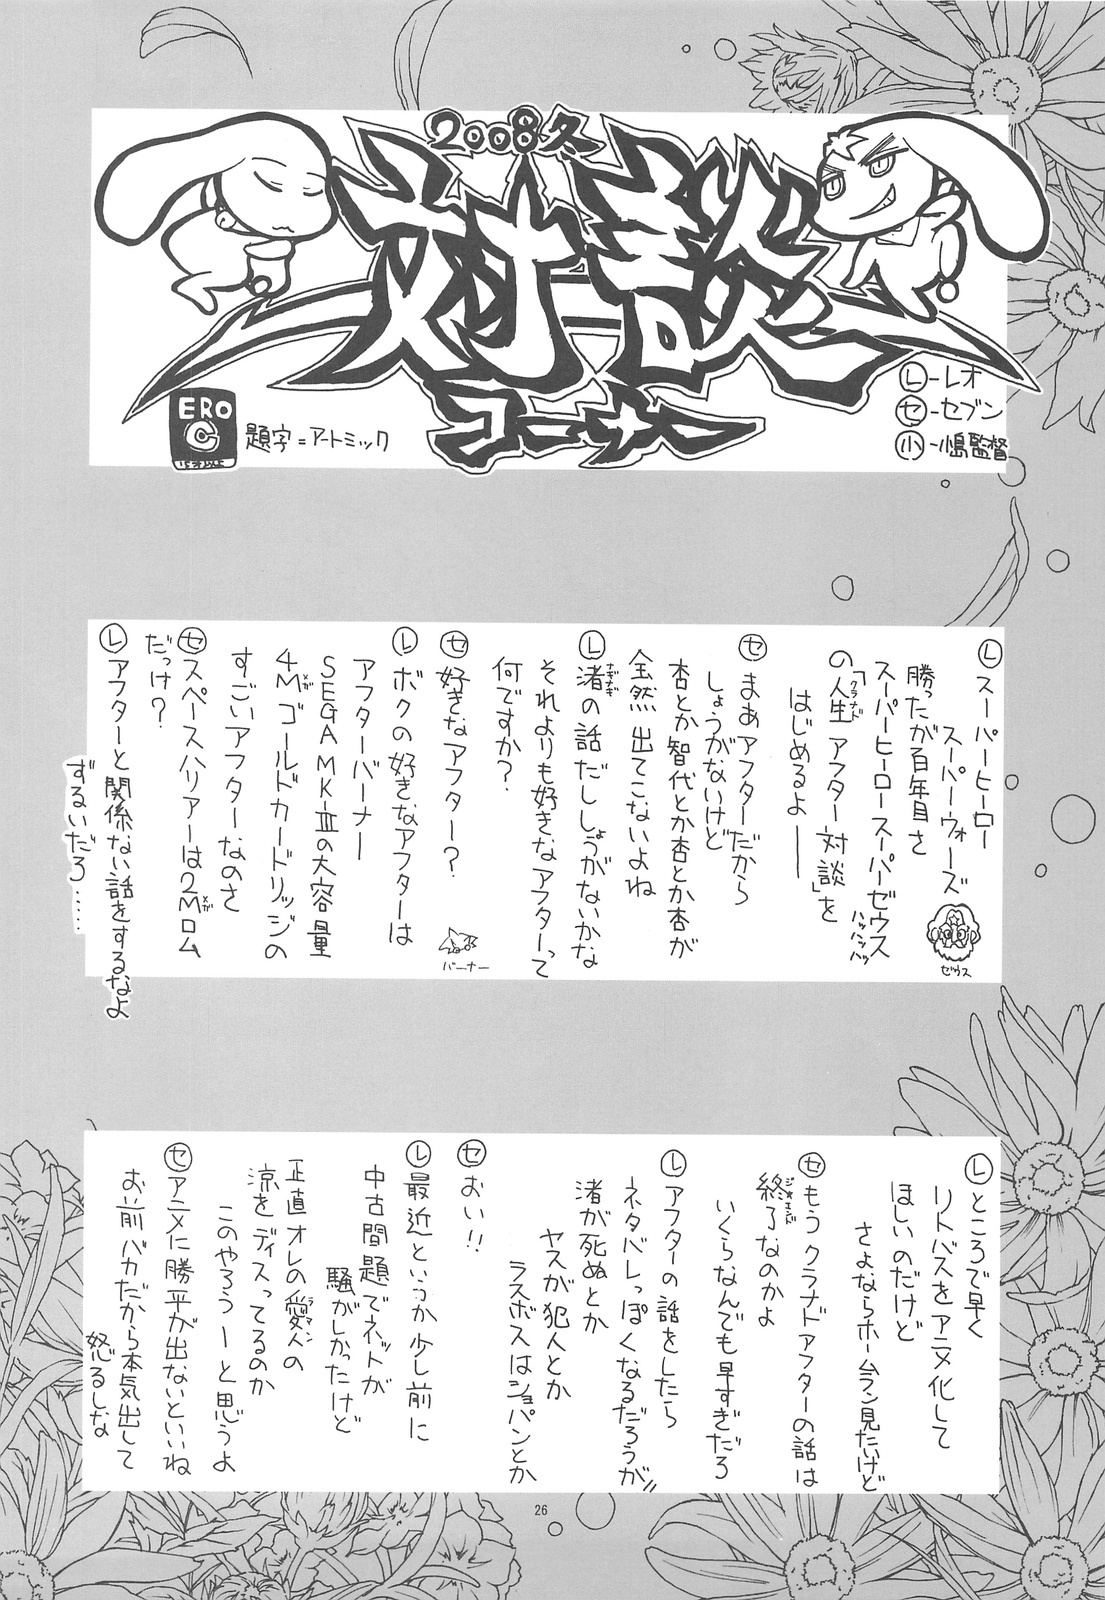 2008冬
対談
コーナー
ERO
C
題字=アートミック
Ⓛ-レオ
セ-セブン
小-小島監督
Ⓛスーパーヒーロー
スーパーウォーズ
勝ったが百年目さ
スーパーヒーロースーパーゼウス
ハッハッハッ
の「人生アフター対談」を
クラナド
はじめるよ――
ゼウス
セ まあアフターだから
しょうがないけど
杏とか智代とか杏とか杏が
全然出てこないよね
Ⓛ渚の話だししょうがないかな
なぎなぎ
それよりも好きなアフターって
何ですか?
セ 好きなアフター?
バーナー
Ⓛボクの好きなアフターは
アフターバーナー
SEGA MK-Ⅲの大容量
4Mゴールドカードリッジの
メガ
すごいアフターなのさ
セ スペースハリアーは2Mロム
メガ
だっけ?
Ⓛアフターと関係ない話をするなよ
ずるいだろ……
Ⓛところで早く
リトバスをアニメ化して
ほしいのだけど
さよならホームラン見たいけど
セ もうクラナドアフターの話は
終了なのかよ
ジ・エンド
いくらなんでも早すぎだろ
Ⓛアフターの話をしたら
ネタバレっぽくなるだろうが!!
渚が死ぬとか
ヤスが犯人とか
ラスボスはショパンとか
セ おい!!
Ⓛ最近というか少し前に
中古問題でネットが
騒がしかったけど
正直オレの愛人の
ラマン
涼をディスってるのか
このやろうーと思うよ
セ アニメに勝平が出ないといいね
お前バカだから本気出して
怒るしな
26